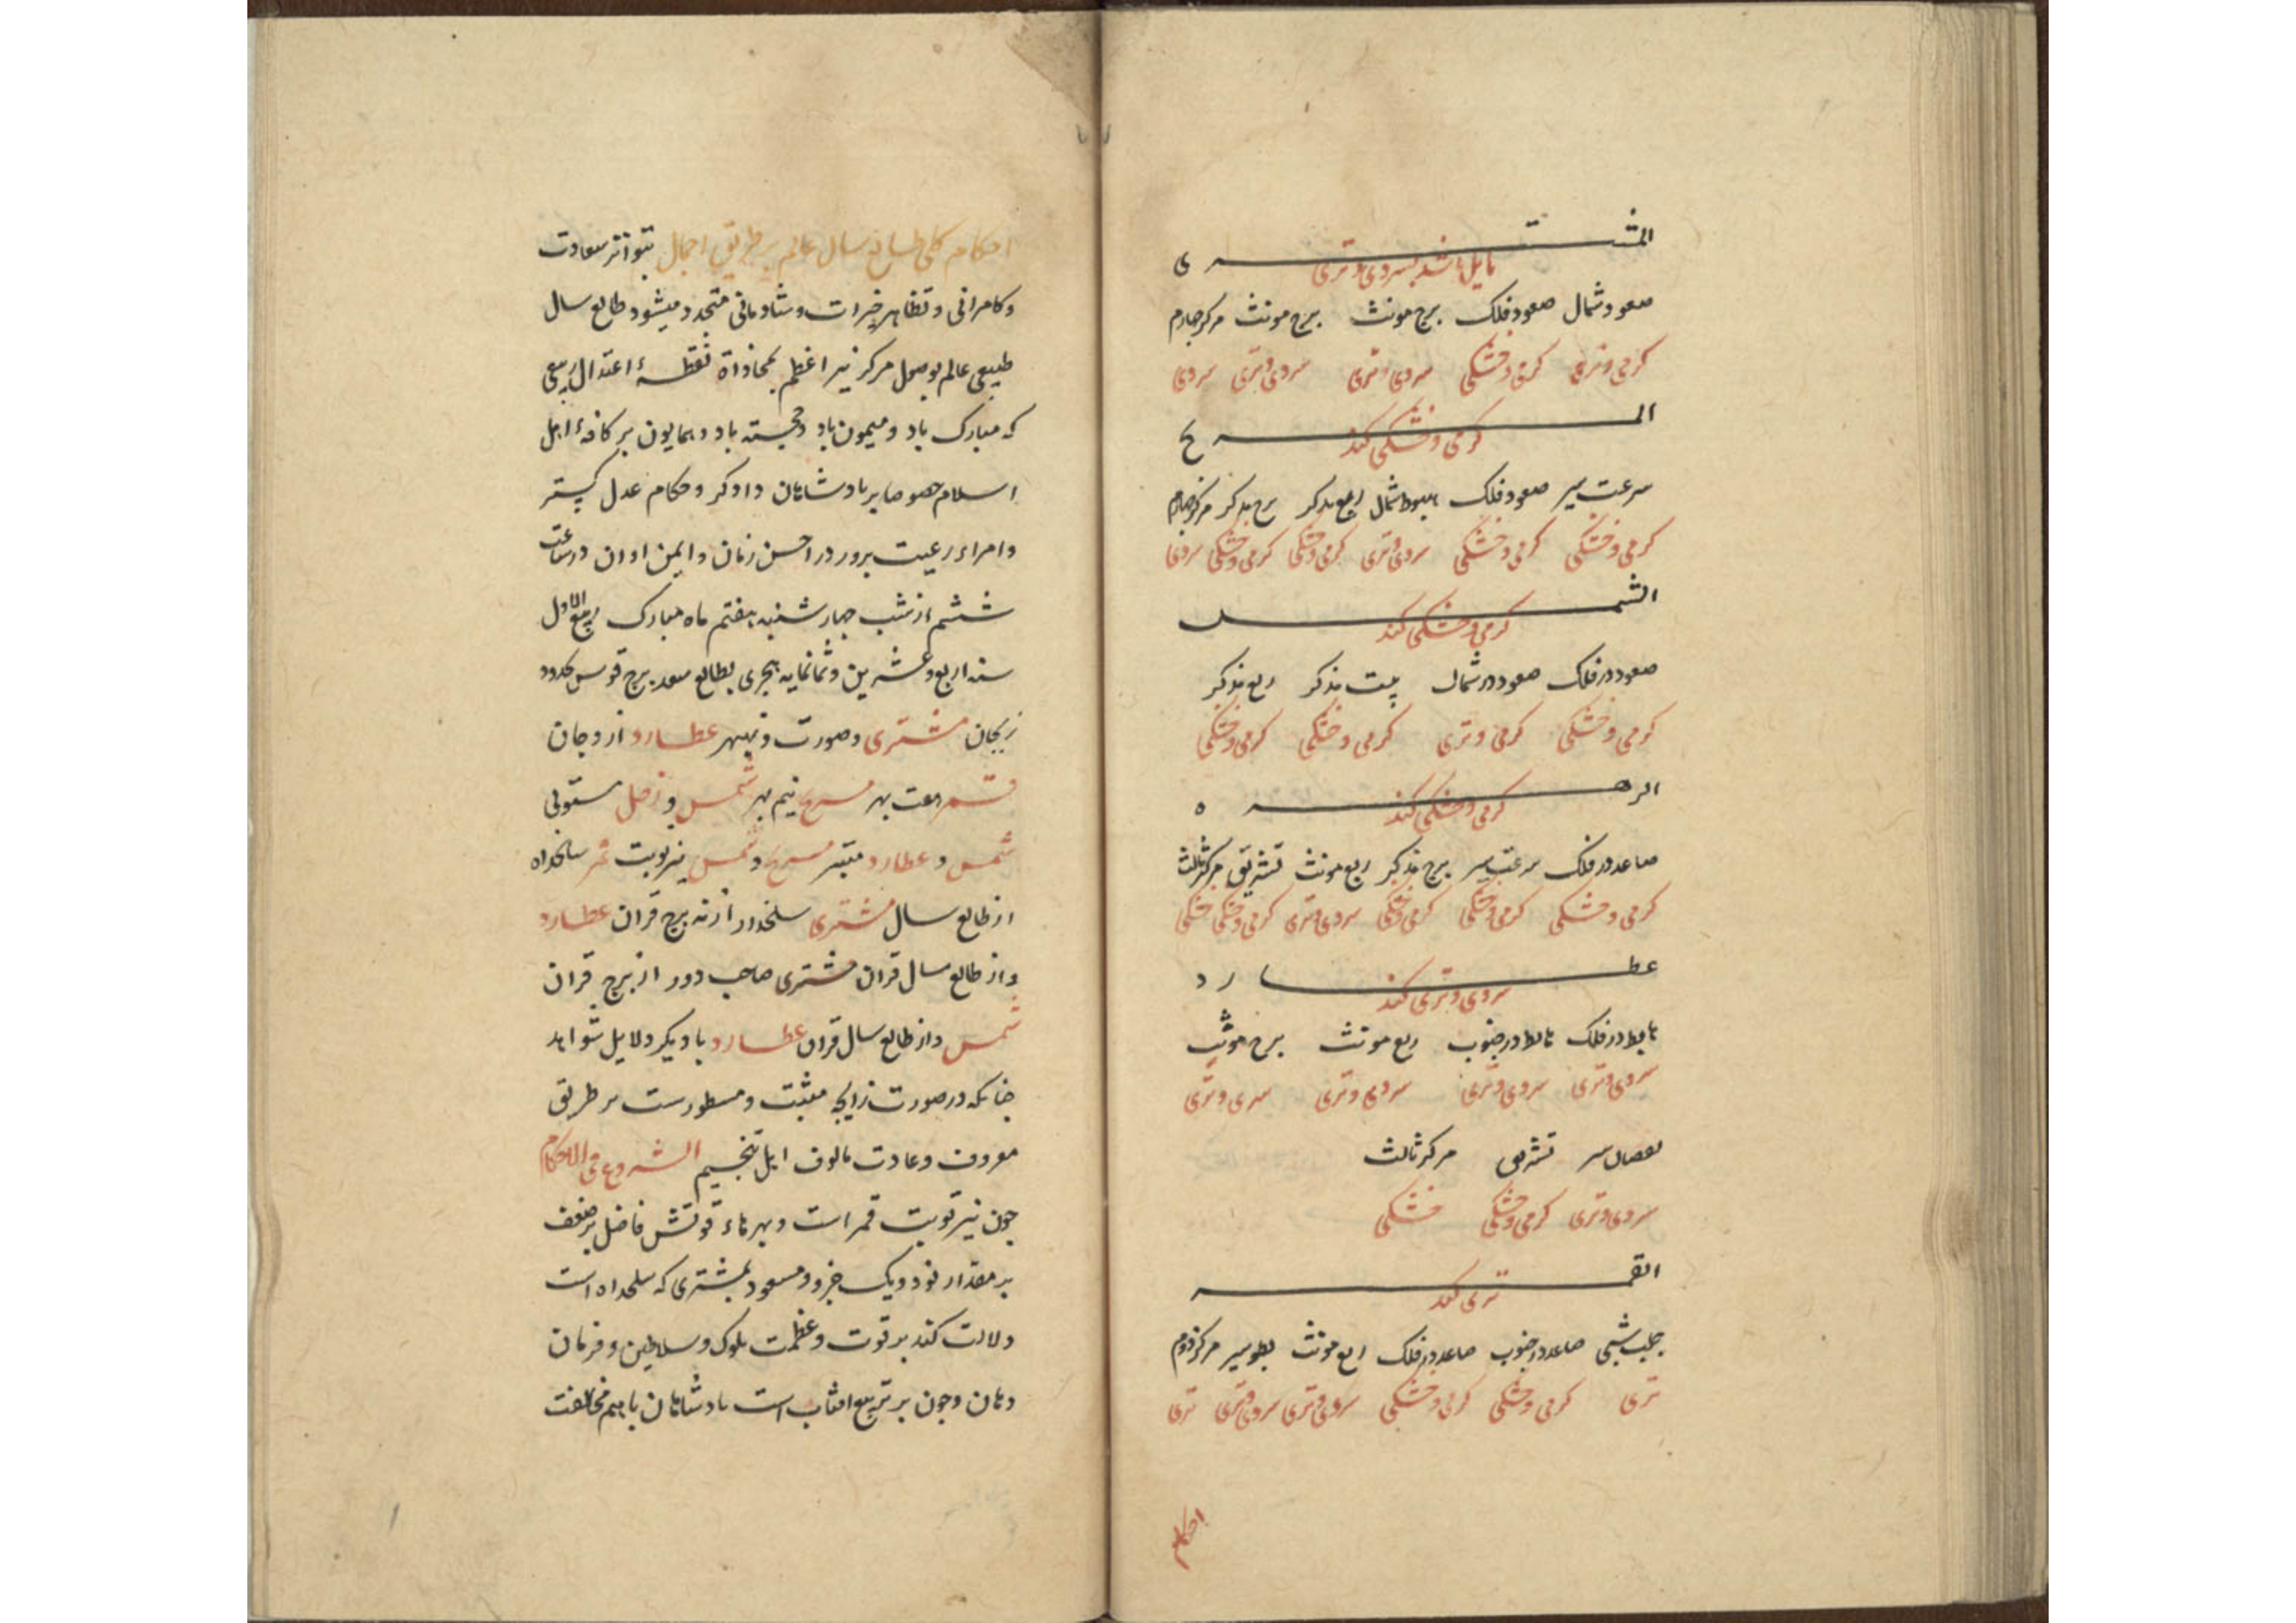 المشتری
مایل باشد بسردی و تری
صعود شمال صعود فلک برج مونث برج مونث مرکز چهارم
کرمی و تری کرمی و خشکی سردی و تری سردی و تری سردی
المریخ
کرمی و خشکی کند
سرعت سیر صعود فلک هبوط شمال ربع مذکر برج مذکر مرکز چهارم
کرمی و خشکی کرمی و خشکی سردی و تری کرمی و خشکی کرمی و خشکی سردی
الشمس
کرمی و خشکی کند
صعود در فلک صعود در شمال بیت مذکر ربع مذکر
کرمی و خشکی کرمی و تری کرمی و خشکی کرمی و خشکی
الزهره
کرمی و خشکی کند
صاعد در فلک سرعت سیر برج مذکر ربع مونث تشریق مرکز ثالث
کرمی و خشکی کرمی و خشکی کرمی و خشکی سردی و تری کرمی و خشکی خشکی
عطارد
سردی و تری کند
هابط در فلک هابط در جنوب ربع مونث برج مونث
سردی و تری سردی و تری سردی و تری سردی و تری
نقصان سیر تشریق مرکز ثالث
سردی و تری کرمی و خشکی خشکی
القمر
تری کند
صاعد در جنوب صاعد در فلک ربع مونث بطو سیر مرکز دوم
تری کرمی و خشکی کرمی و خشکی سردی و تری سردی و تری تری
احکام
احکام کلی طالع سال عالم بر طریق اجمال بتواتر سعادت
و کامرانی و تظاهر خیرات و شادمانی متجدد میشود طالع سال
طبیعی عالم بوصول مرکز نیر اعظم بمحاذاة نقطهٔ اعتدال ربیعی
که مبارک باد و میمون باد و خجسته باد و همایون بر کافهٔ اهل
اسلام خصوصا بر بادشاهان دادکر و حکام عدل کستر
و امراء رعیت برور در احسن زمان و ایمن اوان در ساعت
ششم از شب جهارشنبه هفتم ماه مبارک ربیع الاول
سنه اربع و عشرین و ثمانمایه هجری بطالع سعد برج قوس بحدود
مشتری و صورت و نیبهر عطارد از وجان
قمر بهر مریخ نیم بهر شمس و زحل مستولی
شمس و عطارد مبتز مریخ و شمس نیر نوبت قمر سالخداه
از طالع سال مشتری سلخداد از نه برج قران عطارد
و از طالع سال قران مشتری صاحب دور از برج قران
شمس و از طالع سال قران عطارد با دیکر دلایل شواهد
جنانکه در صورت زایجه مثبت و مسطورست بر طریق
معروف و عادت مالوف اهل تنجیم الشروع فی الاحکام
جون نیر نوبت قمر است و بهرهاء قوتش فاضل بر ضعف
بر مقدار نود و یک جزو و مسعود بمشتری که سلحداه است
دلالت کند بر قوت و عظمت ملوک و سلاطین و فرمان
دهان و جون بر تربیع افتاب است بادشاهان باهم مخالفت